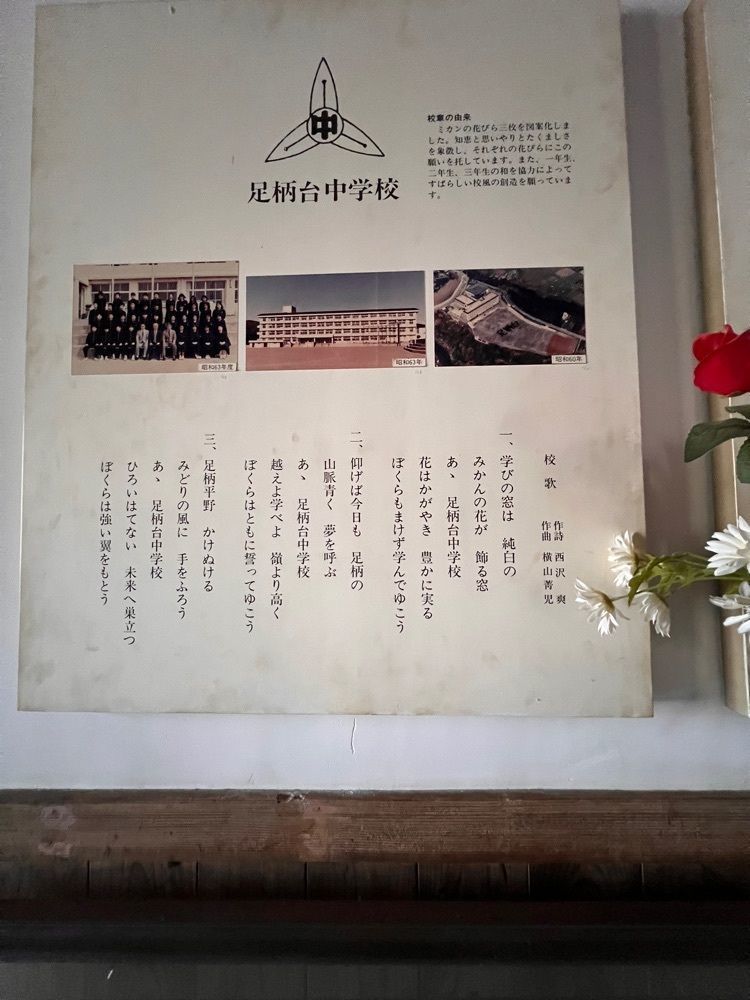 中
足柄台中学校
校章の由来
ミカンの花びら三枚を図案化しま
した。知恵と思いやりとたくましさ
を象徴し、それぞれの花びらにこの
願いを托しています。また、一年生、
二年生、三年生の和を協力によって
すばらしい校風の創造を願っていま
す。
昭和63年度
昭和63年
足柄台
昭和60年
校歌
作詩 西沢 爽
作曲 横山菁児
一、学びの窓は 純白の
みかんの花が 飾る窓
あゝ 足柄台中学校
花はかがやき 豊かに実る
ぼくらもまけず学んでゆこう
二、仰げば今日も 足柄の
山脈青く 夢を呼ぶ
あゝ 足柄台中学校
越えよ学べよ 嶺より高く
ぼくらはともに誓ってゆこう
三、足柄平野 かけぬける
みどりの風に 手をふろう
あゝ 足柄台中学校
ひろいはてない 未来へ巣立つ
ぼくらは強い翼をもとう